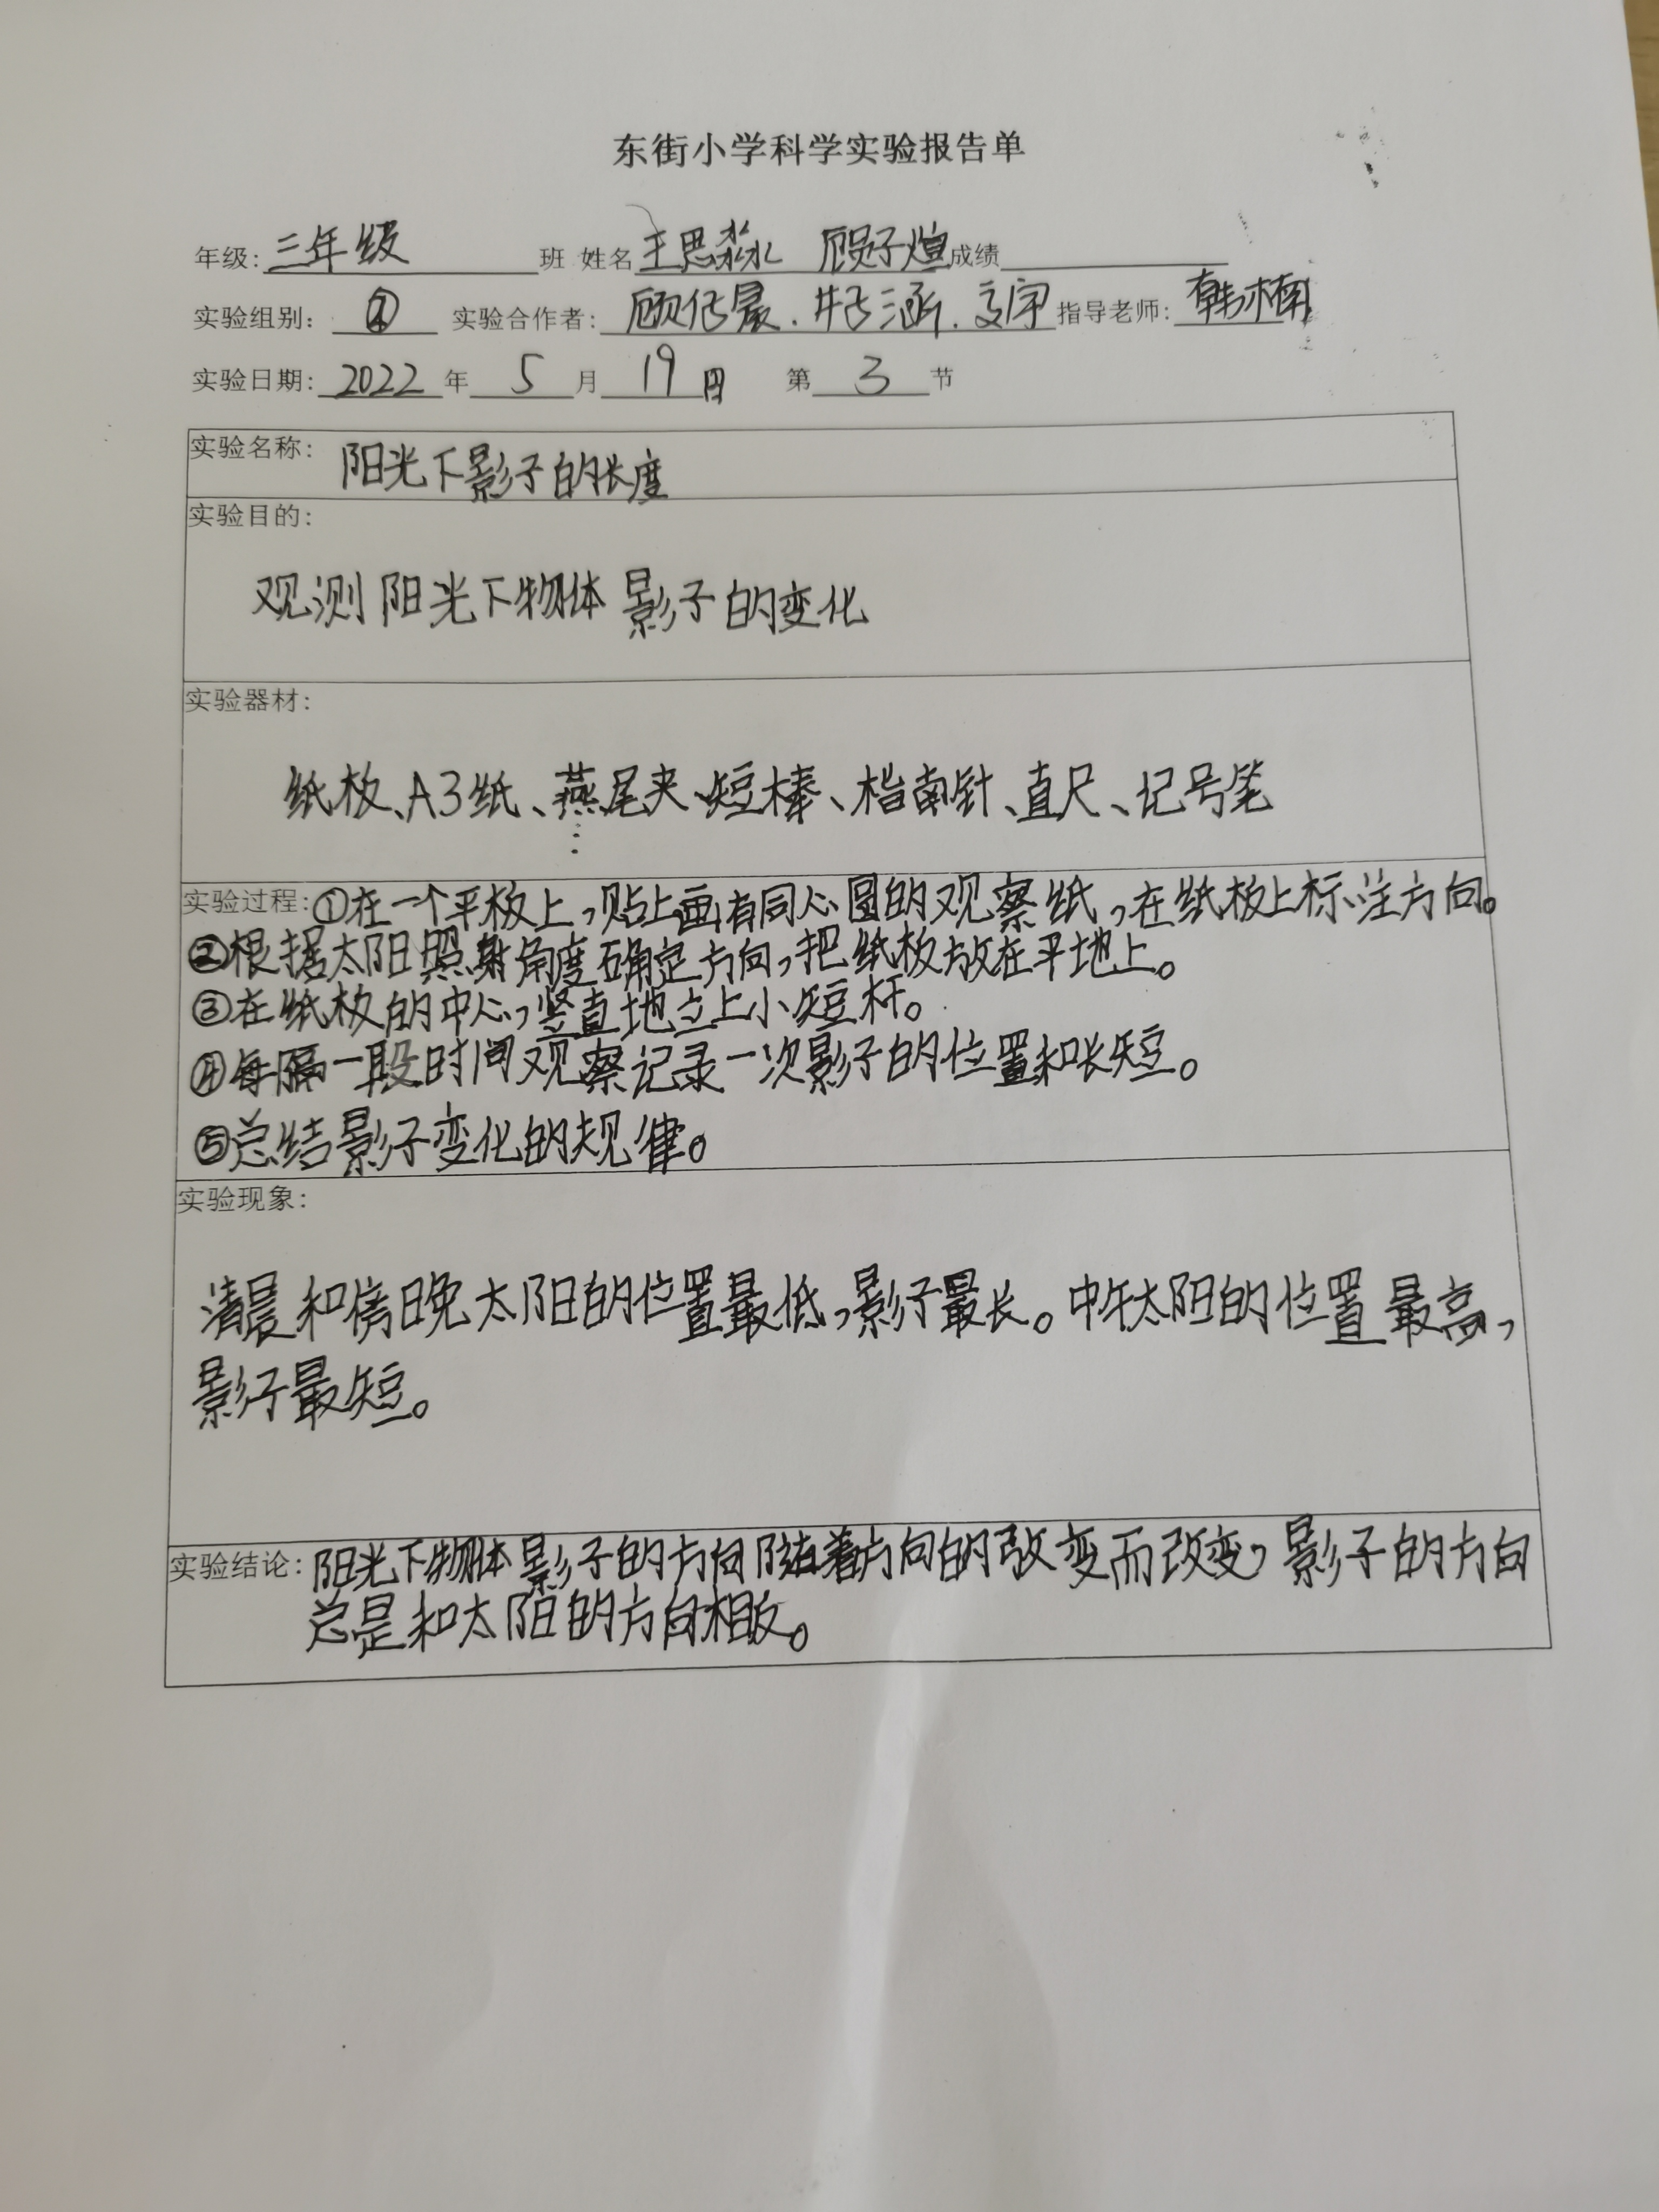 东街小学科学实验报告单
年级: 三年级 班 姓名 王思淼 顾子煊 成绩
实验组别: 实验合作者: 顾佸晨.牛子涵.文宇 指导老师: 韩楠
实验日期: 2022 年 5 月 19 日 第 3 节
实验名称: 阳光下影子的长度
实验目的:
观测阳光下物体影子的变化
实验器材:
纸板、A3纸、燕尾夹、短棒、指南针、直尺、记号笔
实验过程: ①在一个平板上,贴上画有同心圆的观察纸,在纸板上标注方向。
②根据太阳照射角度确定方向,把纸板放在平地上。
③在纸板的中心,竖直地立上小短杆。
④每隔一段时间观察记录一次影子的位置和长短。
⑤总结影子变化的规律。
实验现象:
清晨和傍晚太阳的位置最低,影子最长。中午太阳的位置最高,
影子最短。
实验结论: 阳光下物体影子的方向随着方向的改变而改变,影子的方向
总是和太阳的方向相反。